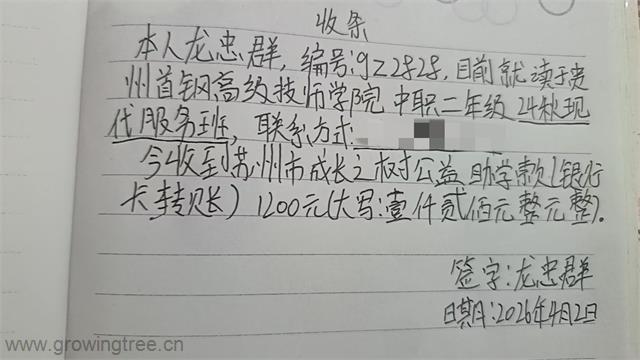 收条
本人龙忠群，编号:gz2828，目前就读于贵
州首钢高级技师学院 中职二年级 24秋现
代服务班，联系方式
今收到苏州市成长之树公益助学款(银行
卡转账) 1200元(大写:壹仟贰佰元整元整).
签字:龙忠群
日期:2026年4月2日
www.growingtree.cn